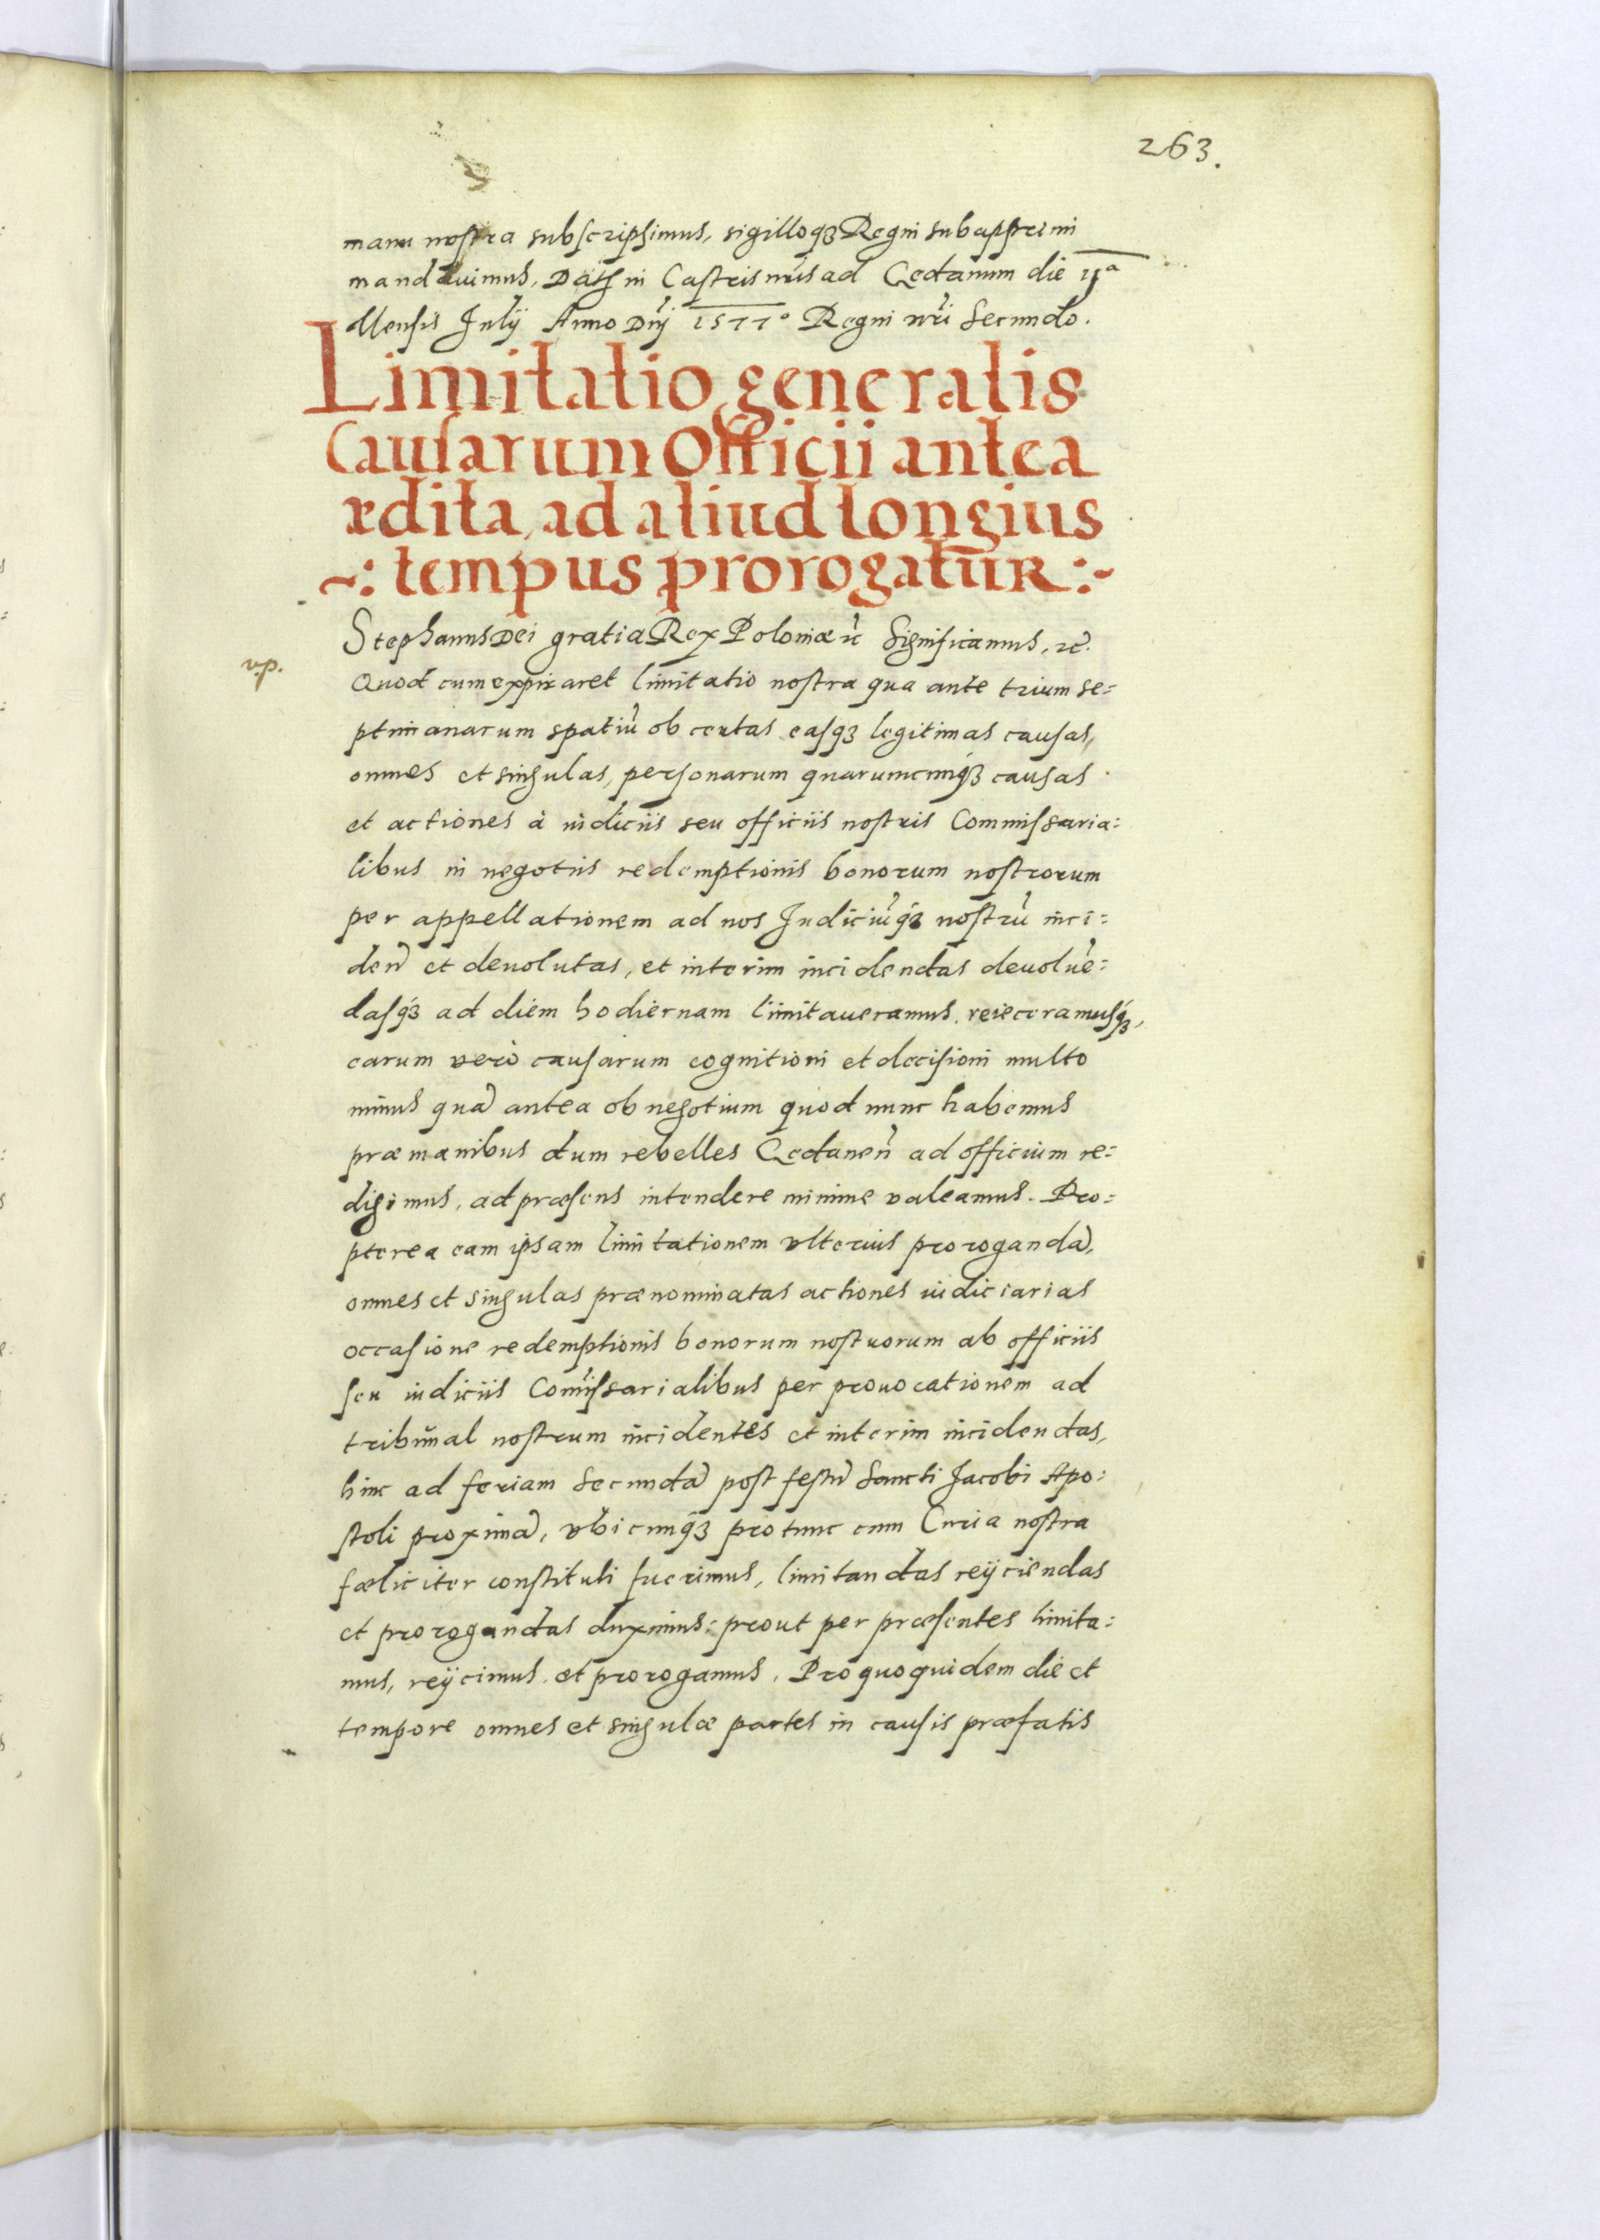 263.
manu nostra subscripsimus, sigilloq3 Regni subapprimi
mandauimus. Dat in Castris nr̃is ad Gedanum die ija
Mensis Julij Anno Dnj 1577° Regni nr̃i Secundo.
Limitatio generalis
Causarum Officii antea
ædita, ad aliud longius
~: tempus prorogatur :~
Stephanus Dei gratia Rex Poloniæ &c̃ Significamus, &c̃.
v.p.
Quod cum expiraret limitatio nostra qua ante trium se=
ptimanarum spatiũ ob certas easq3 legitimas causas,
omnes et singulas, personarum quarumcunq3 causas
et actiones à iudiciis seu officiis nostris Commissaria=
libus in negotiis redemptionis bonorum nostrorum
per appellationem ad nos Judiciũq3 nostrũ inci=
den̄ et deuolutas, et interim incidendas deuoluẽ=
dasq3 ad diem hodiernam limitaueramus, reieceramusq3,
earum verò causarum cognitioni et decisioni multo
minus quã antea ob negotium quod nunc habemus
præ manibus dum rebelles Gedanen̄ ad officium re=
digimus, ad præsens intendere minime valeamus. Pro=
pterea eam ipsam limitationem vlterius prorogandã,
omnes et singulas prænominatas actiones iudiciarias
occasione redemptionis bonorum nostrorum ab officiis
seu iudiciis Com̃issarialibus per prouocationem ad
tribunal nostrum incidentes et interim incidendas,
hinc ad feriam Secundã post festũ Sancti Jacobi Apo=
stoli proximã, vbicunq3 pro tunc cum Curia nostra
fœliciter constituti fuerimus, limitandas reijciendas
et prorogandas duximus: prout per præsentes limita=
mus, reijcimus, et prorogamus. Pro quo quidem die et
tempore omnes et singulæ partes in causis præfatis